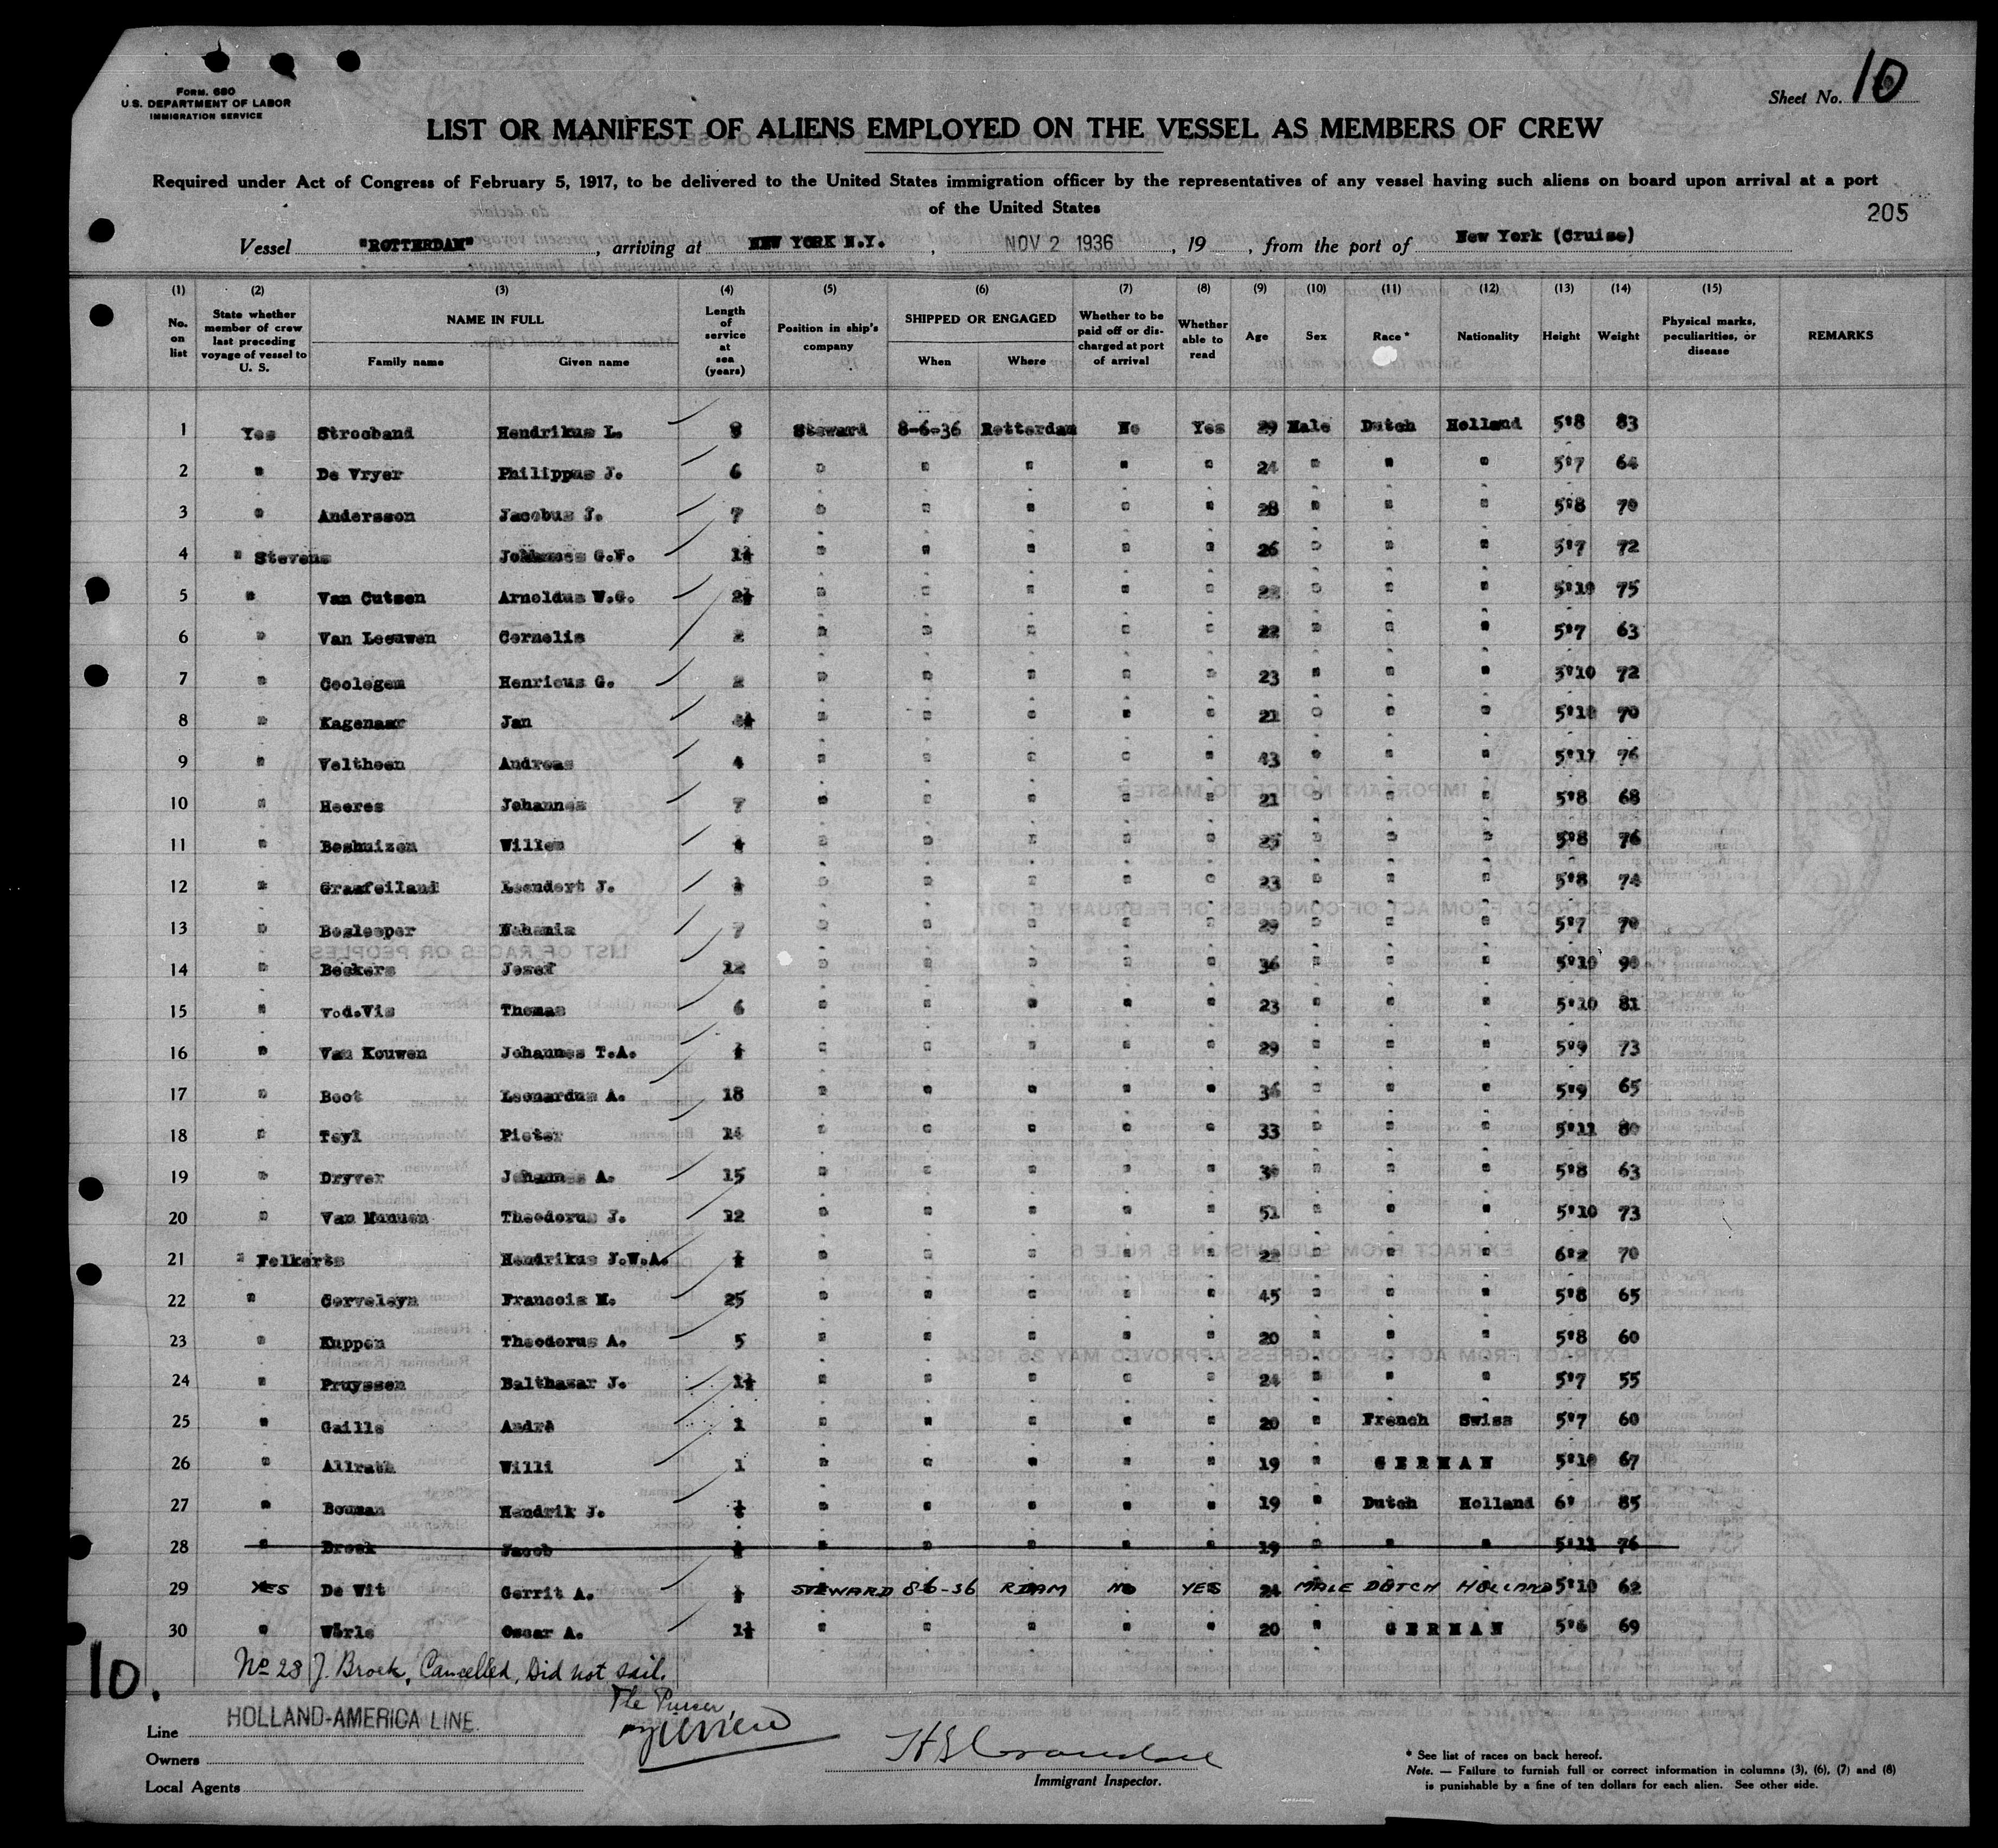 FORM. 680
U.S. DEPARTMENT OF LABOR
IMMIGRATION SERVICE
Sheet No. 10
LIST OR MANIFEST OF ALIENS EMPLOYED ON THE VESSEL AS MEMBERS OF CREW
Required under Act of Congress of February 5, 1917, to be delivered to the United States immigration officer by the representatives of any vessel having such aliens on board upon arrival at a port
of the United States
205
Vessel "ROTTERDAM", arriving at NEW YORK N.Y., NOV 2 1936, 19 , from the port of New York (Cruise)
(1) (2) (3) (4) (5) (6) (7) (8) (9) (10) (11) (12) (13) (14) (15)
No. on list State whether member of crew last preceding voyage of vessel to U. S. NAME IN FULL Family name Given name Length of service at sea (years) Position in ship's company SHIPPED OR ENGAGED When Where Whether to be paid off or discharged at port of arrival Whether able to read Age Sex Race * Nationality Height Weight Physical marks, peculiarities, or disease REMARKS
1 Yes Strooband Hendrikus L. Steward 8-6-36 Rotterdam No Yes 29 Male Dutch Holland 5'8 83
2 " De Vryer Philippus J. 6 " " " " " 24 " " " 5'7 64
3 " Andersson Jacobus J. 7 " " " " " 28 " " " 5'8 70
4 " Stevens Johannes G.F. 1½ " " " " " 26 " " " 5'7 72
5 " Van Cutsen Arnoldus W.G. 2½ " " " " " 22 " " " 5'10 75
6 " Van Leeuwen Cornelis 2 " " " " " 22 " " " 5'7 63
7 " Coolegem Henricus G. 2 " " " " " 23 " " " 5'10 72
8 " Kagenaar Jan " " " " " 21 " " " 5'10 70
9 " Veltheen Andreas 4 " " " " " 43 " " " 5'11 76
10 " Heeres Johannes 7 " " " " " 21 " " " 5'8 68
11 " Beshuizen Willem ½ " " " " " 25 " " " 5'8 76
12 " Graafeiland Leendert J. ½ " " " " " 23 " " " 5'8 74
13 " Beslooper Nehemia 7 " " " " " 29 " " " 5'7 70
14 " Beekers Jozef 12 " " " " " 36 " " " 5'10 90
15 " v.d.Vis Thomas 6 " " " " " 23 " " " 5'10 81
16 " Van Kouwen Johannes T.A. ½ " " " " " 29 " " " 5'9 73
17 " Boot Leonardus A. 18 " " " " " 36 " " " 5'9 65
18 " Teyl Pieter 14 " " " " " 33 " " " 5'11 80
19 " Dryver Johannes A. 15 " " " " " " " " 5'8 63
20 " Van Manuen Theodorus J. 12 " " " " " 51 " " " 5'10 73
21 " Felkerts Hendrikus J.W.A. ½ " " " " " 22 " " " 6'2 70
22 " Corveleyn Francois M. 25 " " " " " 45 " " " 5'8 65
23 " Kuppen Theodorus A. 5 " " " " " 20 " " " 5'8 60
24 " Pruyssen Balthazar J. 1½ " " " " " 24 " " " 5'7 55
25 " Gaille André 1 " " " " " 20 " French Swiss 5'7 60
26 " Allrath Willi 1 " " " " " 19 " GERMAN 5'10 67
27 " Bouman Hendrik J. ½ " " " " " 19 " Dutch Holland 6' 85
28 " Broek Jacob ½ " " " " " 19 " " " 5'11 76
29 YES De Wit Gerrit A. ½ STEWARD 8-6-36 RDAM NO YES 24 MALE DUTCH HOLLAND 5'10 62
30 " Wörle Oscar A. 1½ " " " " " 20 " GERMAN 5'6 69
No 28 J. Broek, Cancelled, Did not sail.
The Purser,
10.
Line HOLLAND-AMERICA LINE.
Owners
Local Agents
Immigrant Inspector.
* See list of races on back hereof.
Note. — Failure to furnish full or correct information in columns (3), (6), (7) and (8)
is punishable by a fine of ten dollars for each alien. See other side.